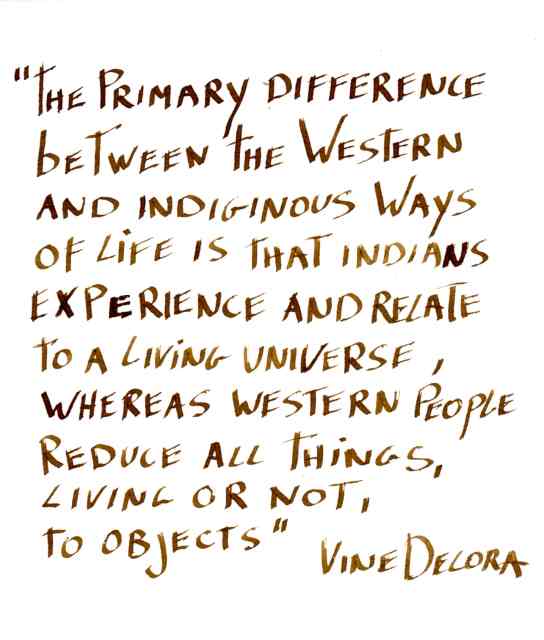 "THE PRIMARY DIFFERENCE
beTWEEN THE WESTERN
AND INDIGINOUS WAYS
OF LiFE IS THAT INDIANS
EXPERIENCE AND RELATE
TO A LIVING UNIVERSE,
WHEREAS WESTERN PEOPLE
REDUCE ALL THINGS,
LIVING OR NOT,
TO OBJECTS"
VINE DELORA